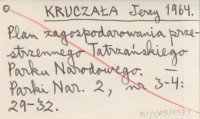 KRUCZAŁA Jerzy 1964.
Plan zagospodarowania prze-
strzennego Tatrzańskiego
Parku Narodowego. —
Parki Nar. 2, nr 3-4:
29-32.